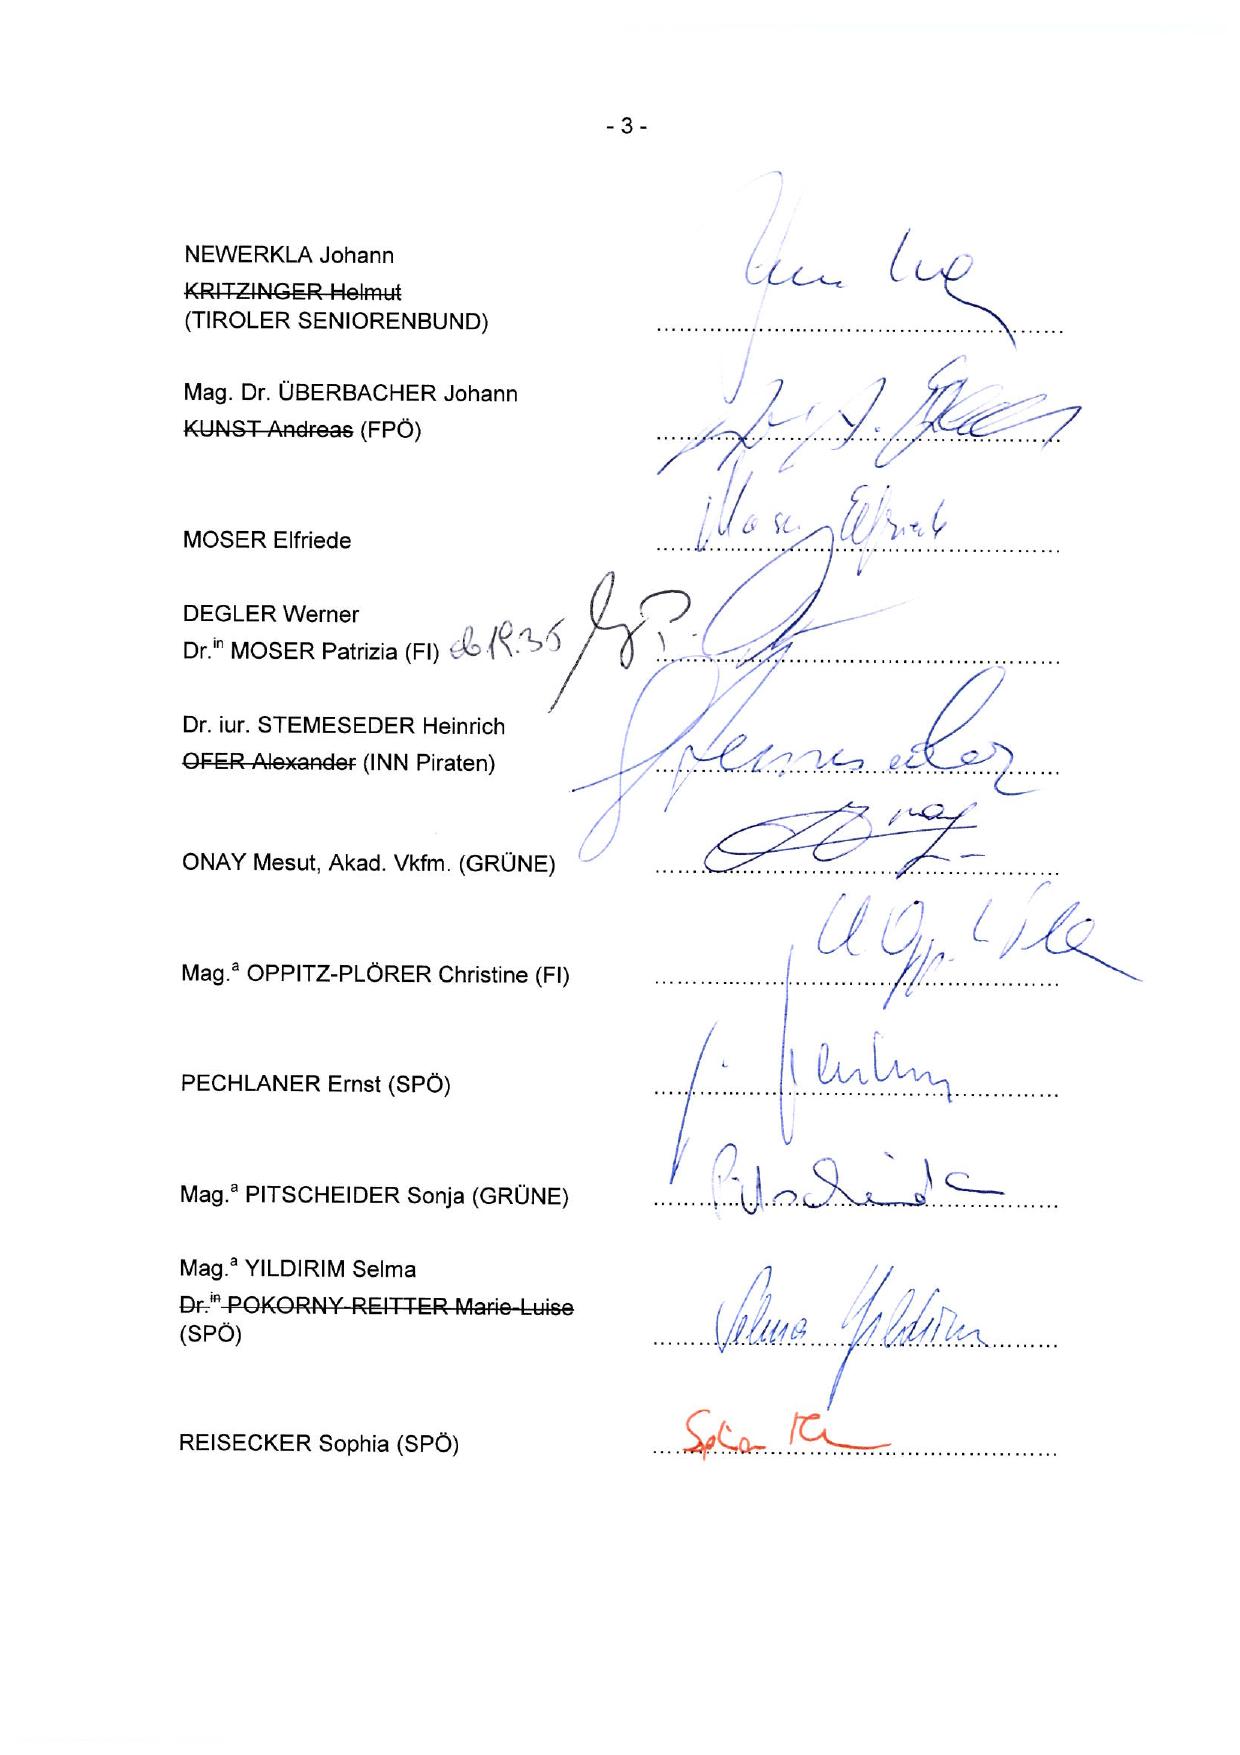 - 3 -
NEWERKLA Johann
KRITZINGER Helmut
(TIROLER SENIORENBUND)
Mag. Dr. ÜBERBACHER Johann
KUNST Andreas (FPÖ)
MOSER Elfriede
Moser Elfriede
DEGLER Werner
Dr.in MOSER Patrizia (FI) ab 19.35
Dr. iur. STEMESEDER Heinrich
OFER Alexander (INN Piraten)
Stemeseder
ONAY Mesut, Akad. Vkfm. (GRÜNE)
Onay
Mag.a OPPITZ-PLÖRER Christine (FI)
PECHLANER Ernst (SPÖ)
Mag.a PITSCHEIDER Sonja (GRÜNE)
Pitscheider
Mag.a YILDIRIM Selma
Dr.in POKORNY-REITTER Marie-Luise
(SPÖ)
Selma Yildirim
REISECKER Sophia (SPÖ)